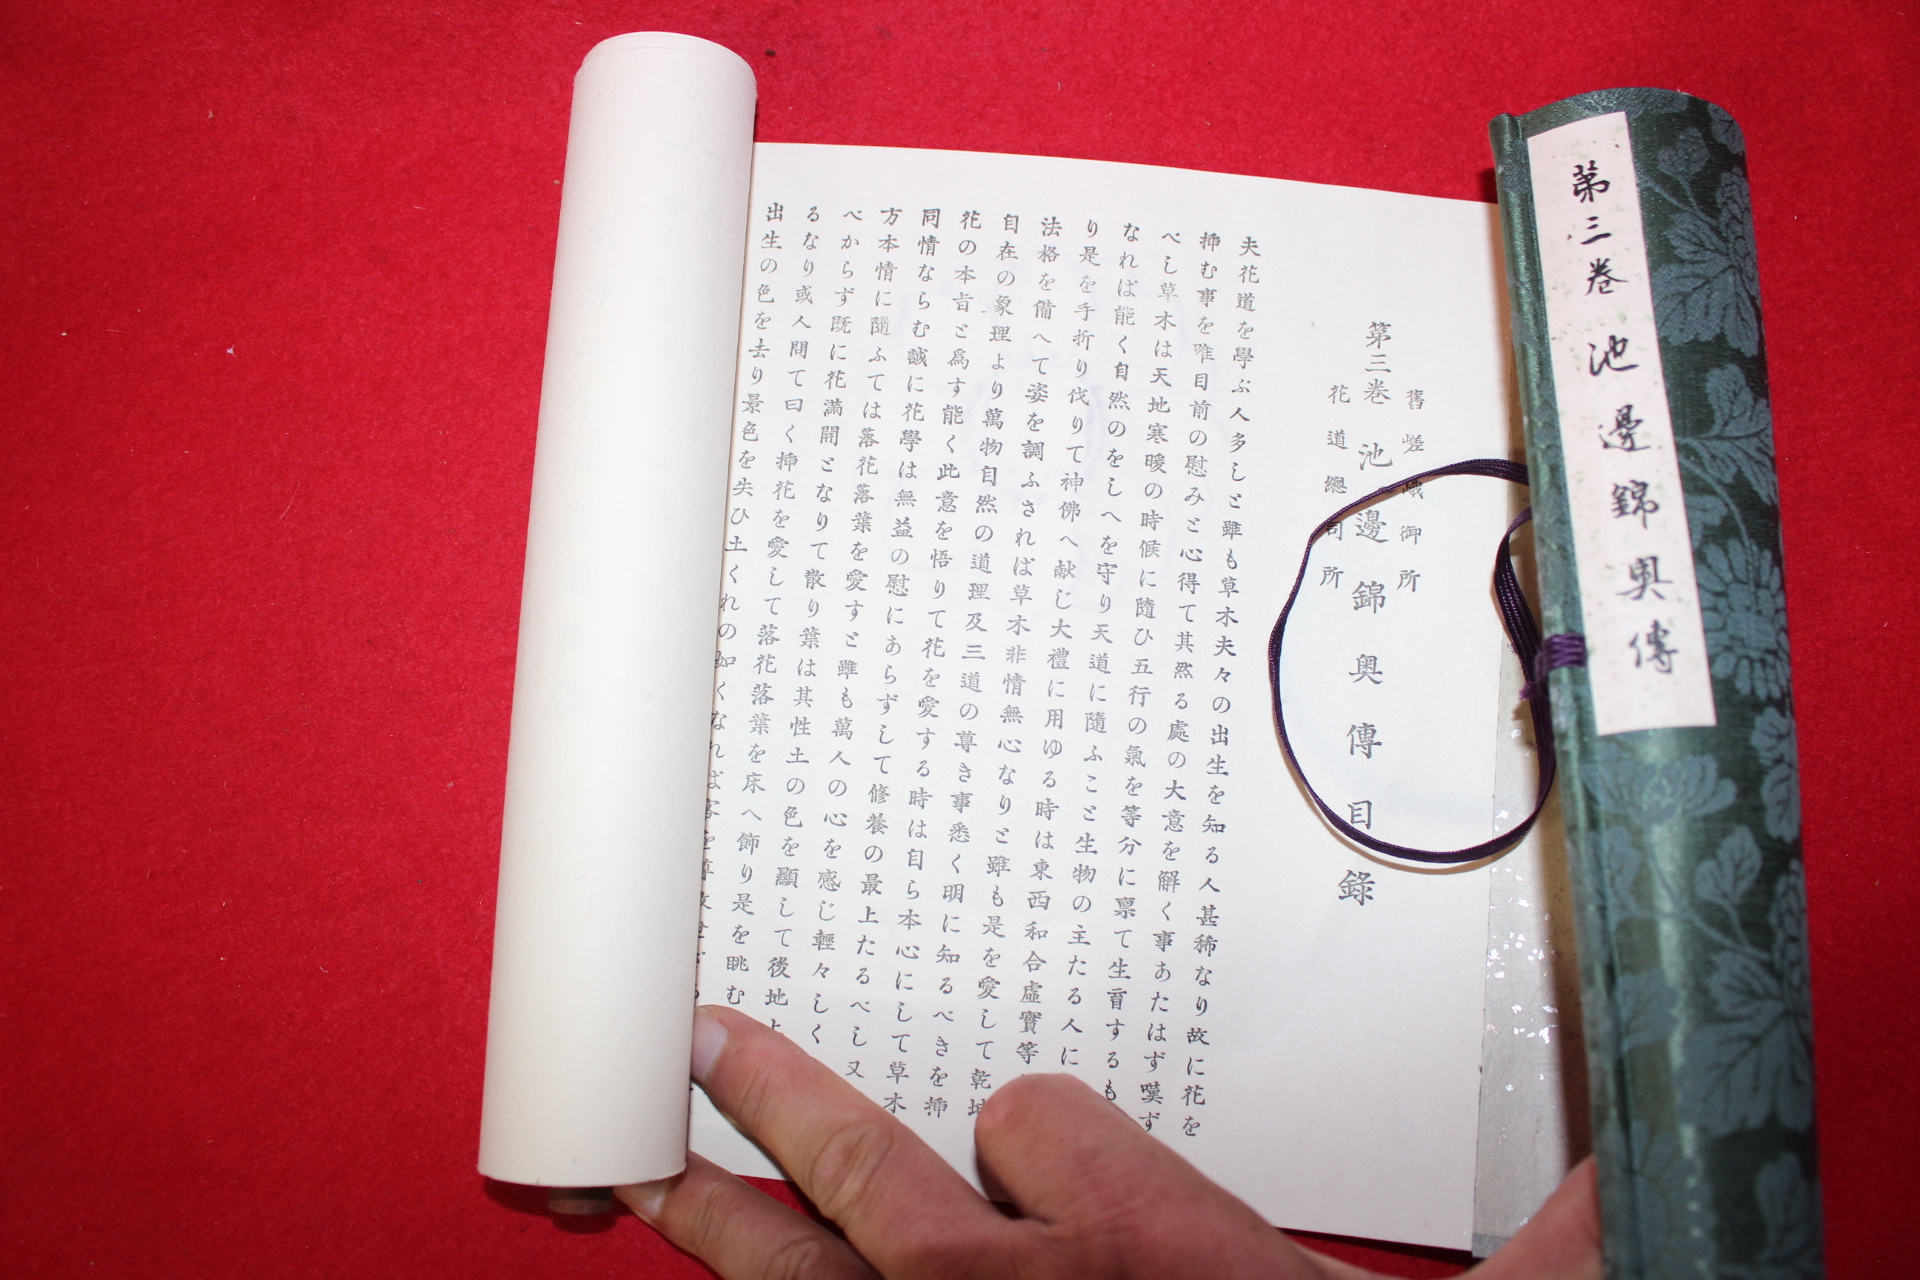 第三卷 池邊錦奥傳
舊嵯峨御所
第三卷 池邊錦奥傳目錄
花道總司所
夫花道を學ぶ人多しと雖も草木夫々の出生を知る人甚稀なり故に花を
挿む事を唯目前の慰みと心得て其然る處の大意を解く事あたはず嘆ず
べし草木は天地寒暖の時候に隨ひ五行の氣を等分に禀て生育するも
なれば能く自然のをしへを守り天道に隨ふこと生物の主たる人に
り是を手折り伐りて神佛へ献じ大禮に用ゆる時は東西和合虛實等
法格を備へて姿を調ふされば草木非情無心なりと雖も是を愛して乾坤
自在の象理より萬物自然の道理及三道の尊き事悉く明に知るべきを挿
花の本旨と爲す能く此意を悟りて花を愛する時は自ら本心にして草木
同情ならむ誠に花學は無益の慰にあらずして修養の最上たるべし又
方本情に隨ふては落花落葉を愛すと雖も萬人の心を感じ輕々しく
べからず既に花滿開となりて散り葉は其性土の色を顯して後地上
るなり或人問て曰く挿花を愛して落花落葉を床へ飾り是を眺む
出生の色を去り景色を失ひ土くれの如くなれば客を尊敬せざる